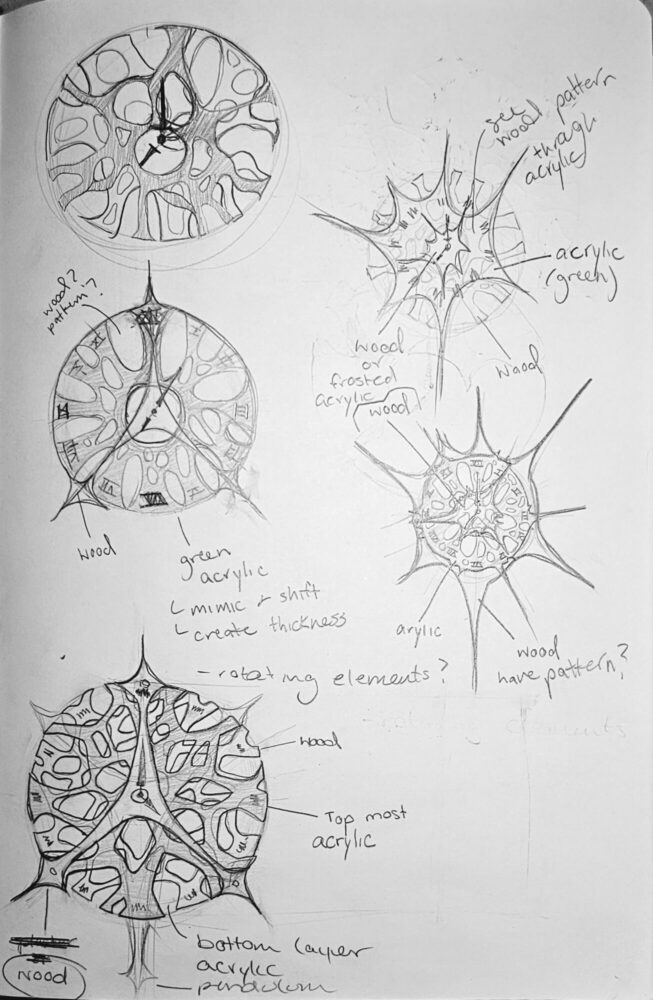 see
wood pattern
through
acrylic
acrylic
(green)
wood?
pattern?
XII
wood
or
frosted
acrylic
wood
wood
wood
green
acrylic
mimic + shift
create thickness
- rotating elements?
arylic
wood
have pattern?
- rotating elements
wood
Top most
acrylic
bottom layer
acrylic
pendulum
wood